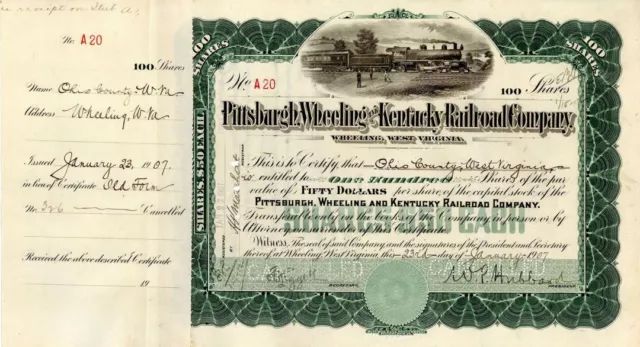 receipt on Stub A
No. A20
100 Shares
Name Ohio County W. Va
Address Wheeling, W. Va
Issued January 23, 1907
in lieu of Certificate Old Form
No. 326 Cancelled
Received the above described Certificate
19
100 SHARES
SHARES
SHARES, $50 EACH.
No A20
100 Shares
Pittsburgh, Wheeling and Kentucky Railroad Company.
WHEELING, WEST VIRGINIA.
This is to Certify that Ohio County, West Virginia,
is entitled to One Hundred Shares of the par
value of FIFTY DOLLARS per share of the capital stock of the
PITTSBURGH, WHEELING AND KENTUCKY RAILROAD COMPANY.
Transferable only on the books of the Company in person or by
Attorney on surrender of this Certificate.
Witness, The seal of said Company and the signatures of the President and Secretary
thereof at Wheeling, West Virginia this 23rd day of January 1907
W. P. Hubbard
PRESIDENT.